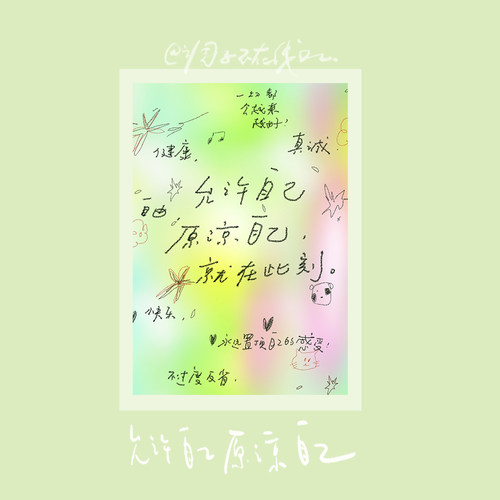 一切都
会越来
越好!
健康.
真诚.
允许自己
自由
原谅自己,
就在此刻。
快乐.
永远置顶自己的感受!
不过度反省.
允许自己原谅自己